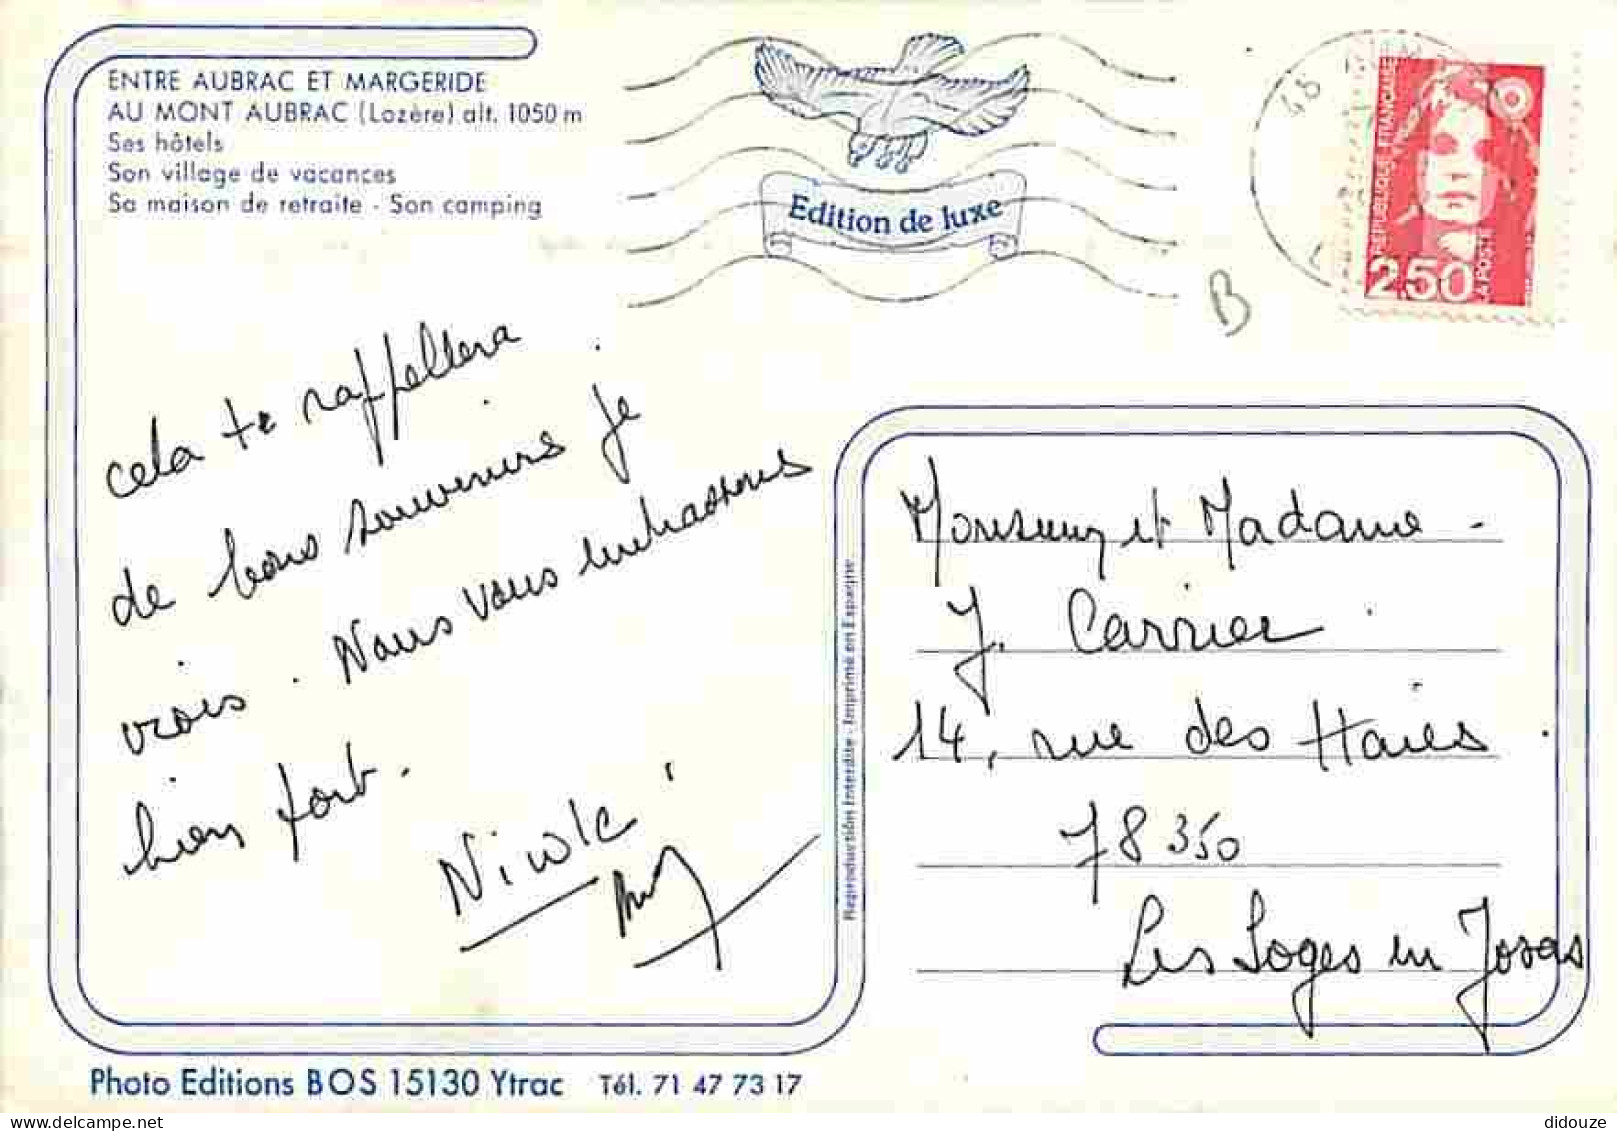 ENTRE AUBRAC ET MARGERIDE
AU MONT AUBRAC (Lozère) alt. 1050 m
Ses hôtels
Son village de vacances
Sa maison de retraite - Son camping
Edition de luxe
48
REPUBLIQUE FRANÇAISE
2,50
LA POSTE
B
cela te rappellera
de bons souvenirs je
crois. Nous vous embrassons
bien fort.
Nicole
Monsieur et Madame -
J. Carrier
14, rue des Haies
78350
Les Loges en Josas
Reproduction Interdite - Imprimé en Espagne
Photo Editions BOS 15130 Ytrac Tél. 71 47 73 17
didouze